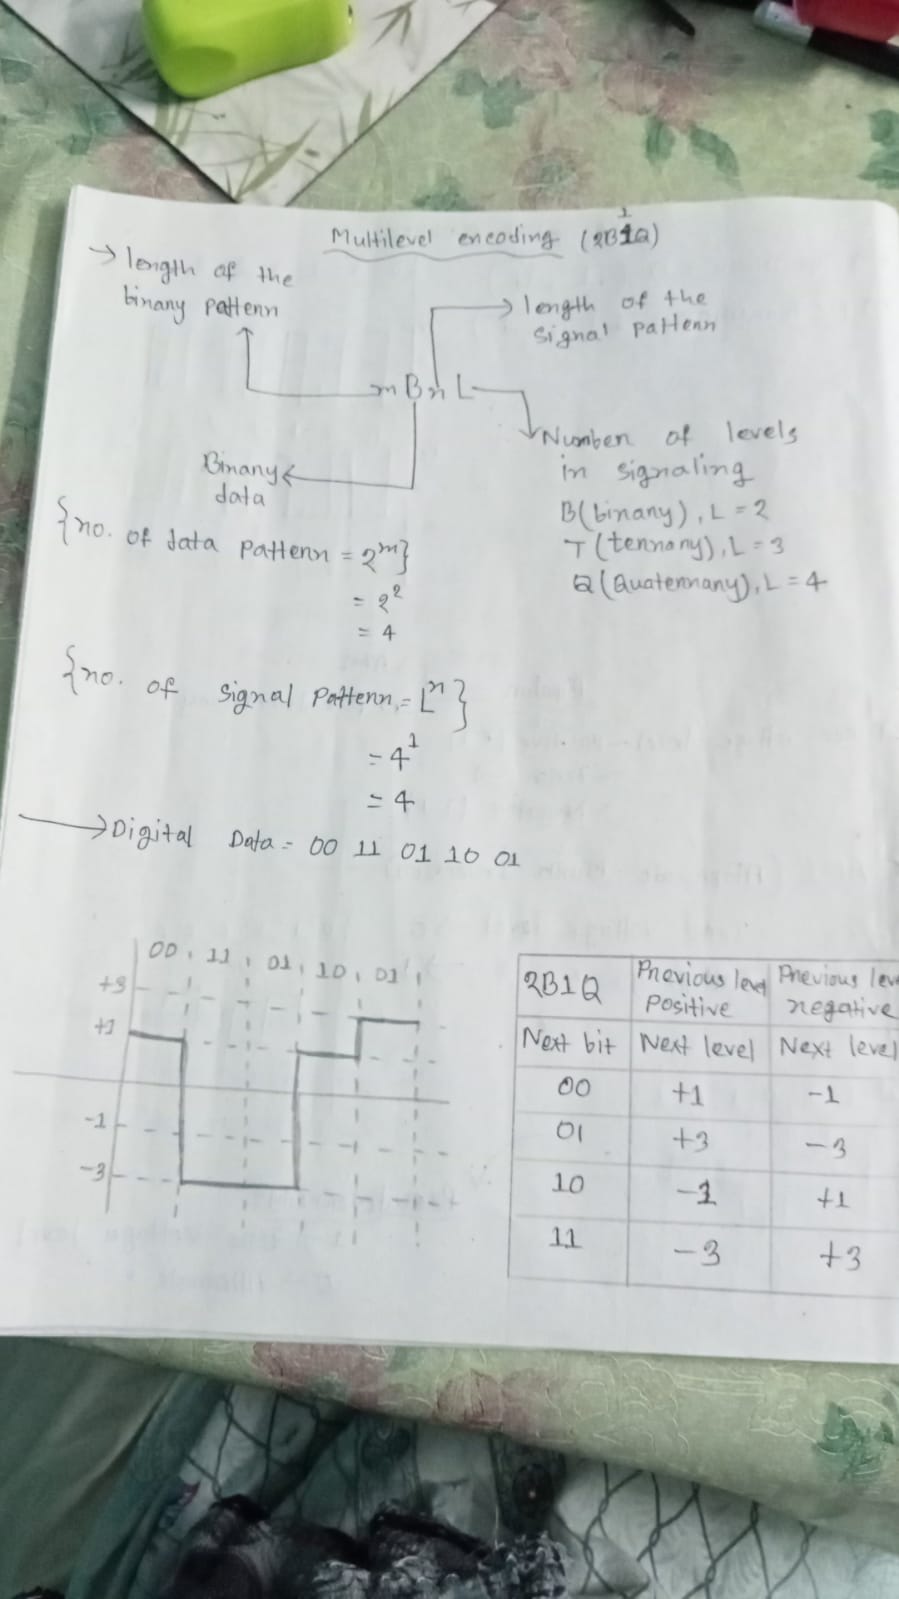 Multilevel encoding (2B1Q)
1
→ length of the
binary pattern
→ length of the
signal pattern
mBnL
Number of levels
in signaling
B(binary), L = 2
T(ternary), L = 3
Q(Quaternary), L = 4
Binary
data
{no. of data pattern = 2^m}
= 2^2
= 4
{no. of signal pattern = L^n}
= 4^1
= 4
→ Digital Data = 00 11 01 10 01
00 11 01 10 01
+3
+1
-1
-3
2B1Q Previous level positive Previous leve negative
Next bit Next level Next level
00 +1 -1
01 +3 -3
10 -1 +1
11 -3 +3